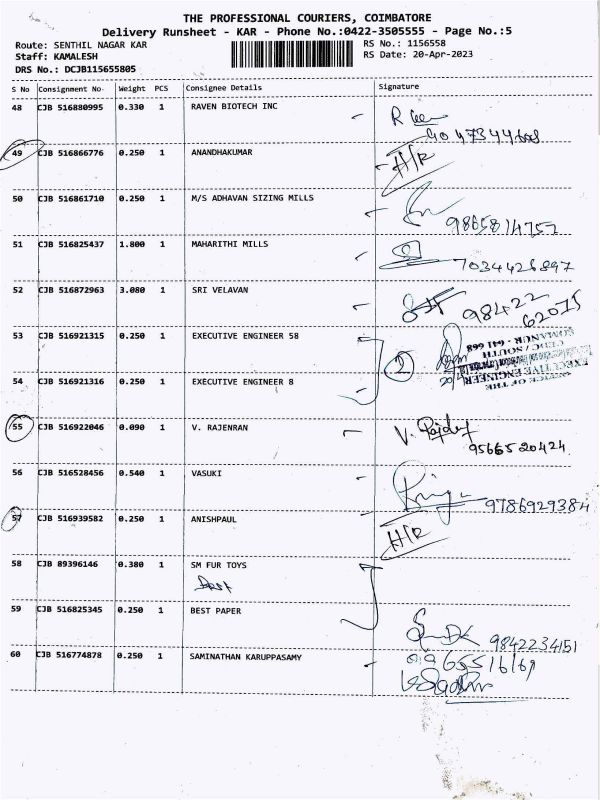 THE PROFESSIONAL COURIERS, COIMBATORE
Delivery Runsheet - KAR - Phone No.:0422-3505555 - Page No.:5
Route: SENTHIL NAGAR KAR
RS No.: 1156558
Staff: KAMALESH
RS Date: 20-Apr-2023
DRS No.: DCJB115655805
S No Consignment No Weight PCS Consignee Details Signature
48 CJB 516880995 0.330 1 RAVEN BIOTECH INC
49 CJB 516866776 0.250 1 ANANDHAKUMAR H/R
50 CJB 516861710 0.250 1 M/S ADHAVAN SIZING MILLS
9865814757
51 CJB 516825437 1.800 1 MAHARITHI MILLS
7034426897
52 CJB 516872963 3.080 1 SRI VELAVAN
98422
62015
53 CJB 516921315 0.250 1 EXECUTIVE ENGINEER 58
2
OFFICE OF THE
EXECUTIVE ENGINEER
CEDC / SOUTH
SOMANUR - 641 668
54 CJB 516921316 0.250 1 EXECUTIVE ENGINEER 8
55 CJB 516922046 0.090 1 V. RAJENRAN
V.
9566520424
56 CJB 516528456 0.540 1 VASUKI
9786929384
57 CJB 516939582 0.250 1 ANISHPAUL H/R
58 CJB 89396146 0.380 1 SM FUR TOYS
59 CJB 516825345 0.250 1 BEST PAPER
9842234151
60 CJB 516774878 0.250 1 SAMINATHAN KARUPPASAMY